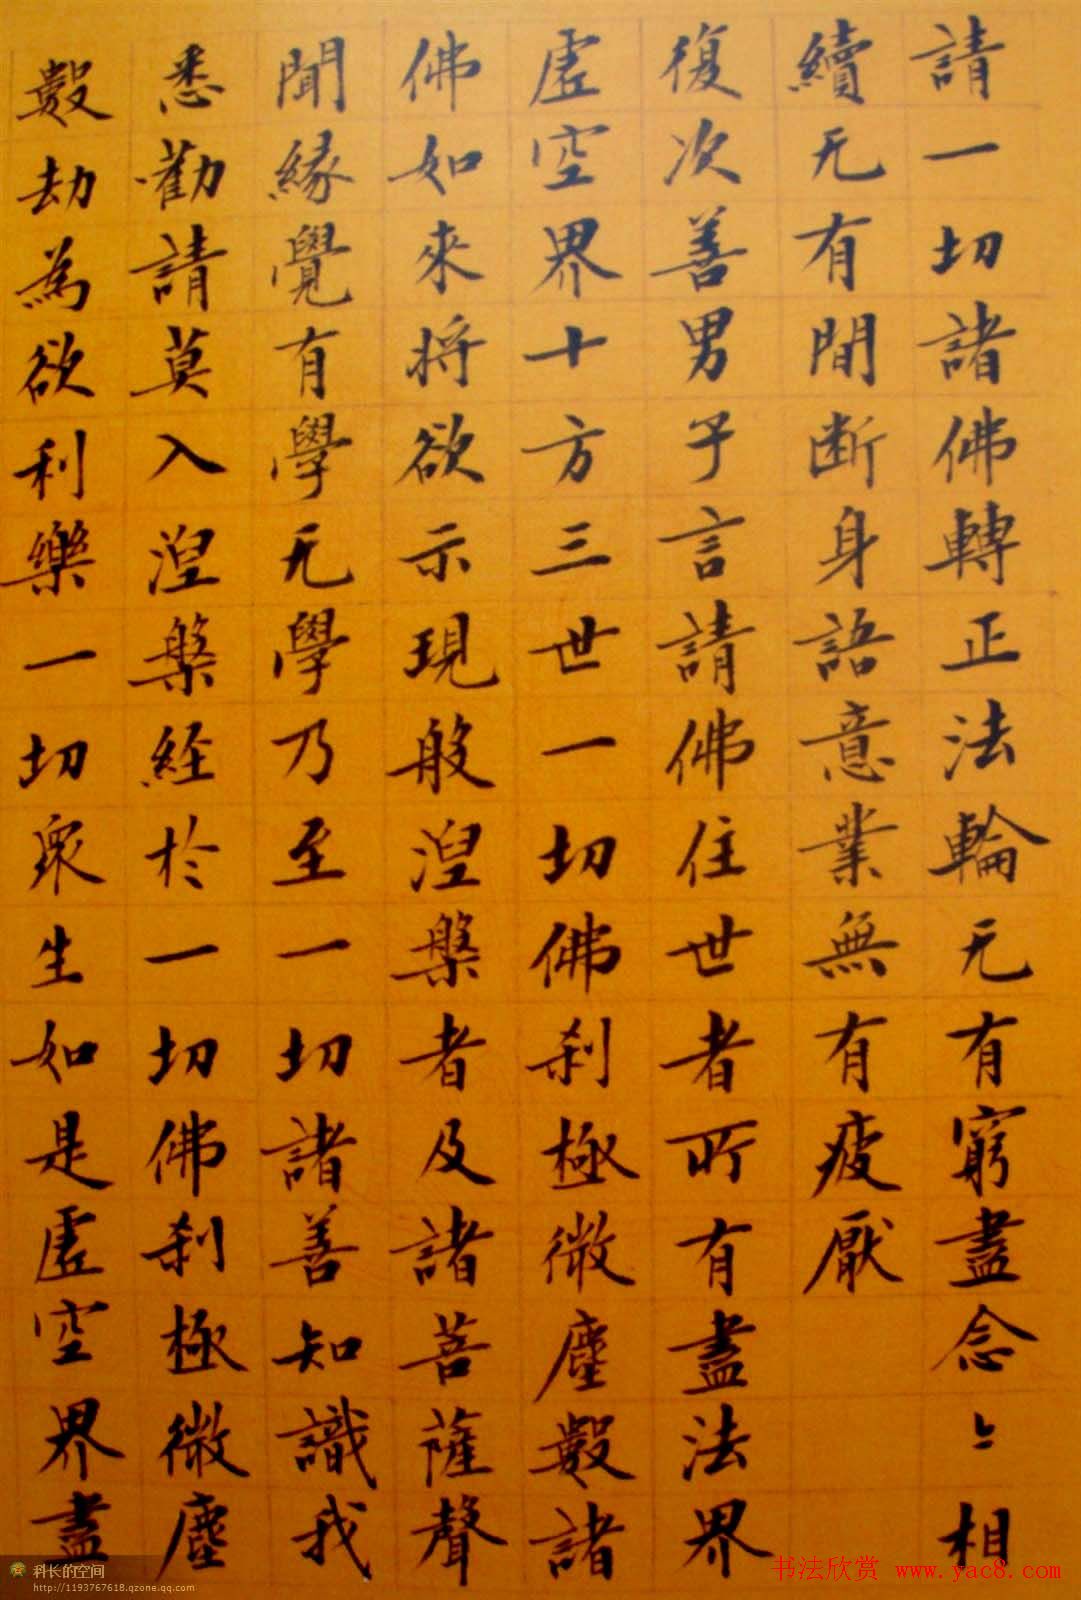 請一切諸佛轉正法輪无有窮盡念〻相
續无有間断身語意業無有疲厭
復次善男子言請佛住世者所有盡法界
虛空界十方三世一切佛刹極微塵數諸
佛如來將欲示現般涅槃者及諸菩薩聲
聞緣覺有學无學乃至一切諸善知識我
悉勸請莫入涅槃経於一切佛刹極微塵
數劫為欲利樂一切眾生如是虛空界盡
科长的空间
http://1193767618.qzone.qq.com
书法欣赏 www.yac8.com